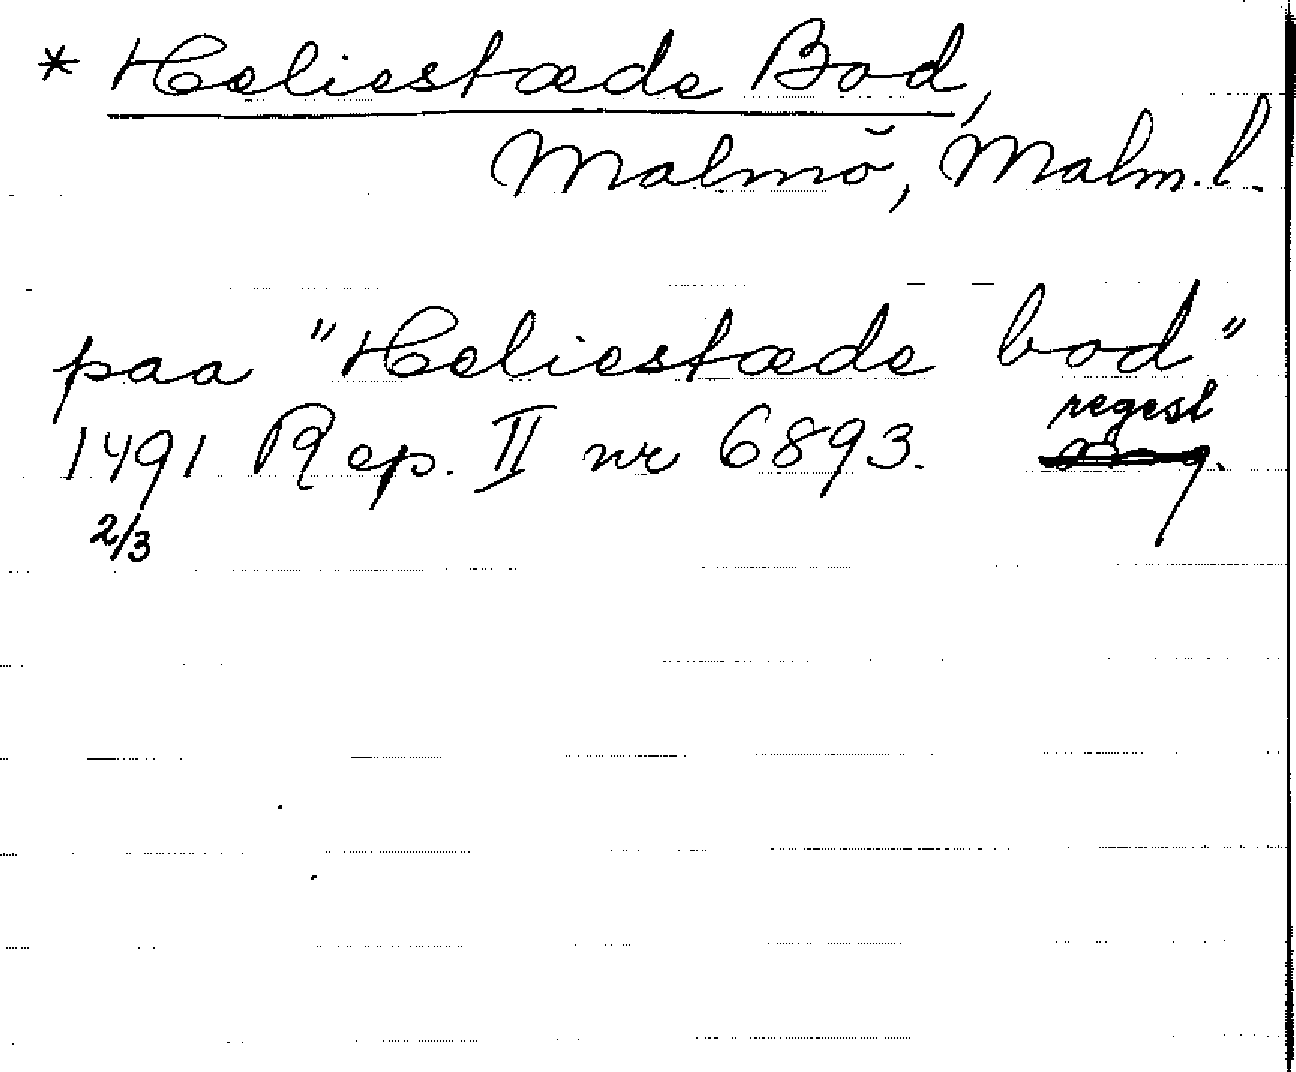 * Heliestæde Bod,
Malmö, Malm. l.
paa "Heliestæde bod"
1491 Rep. II nr 6893. regest
2/3